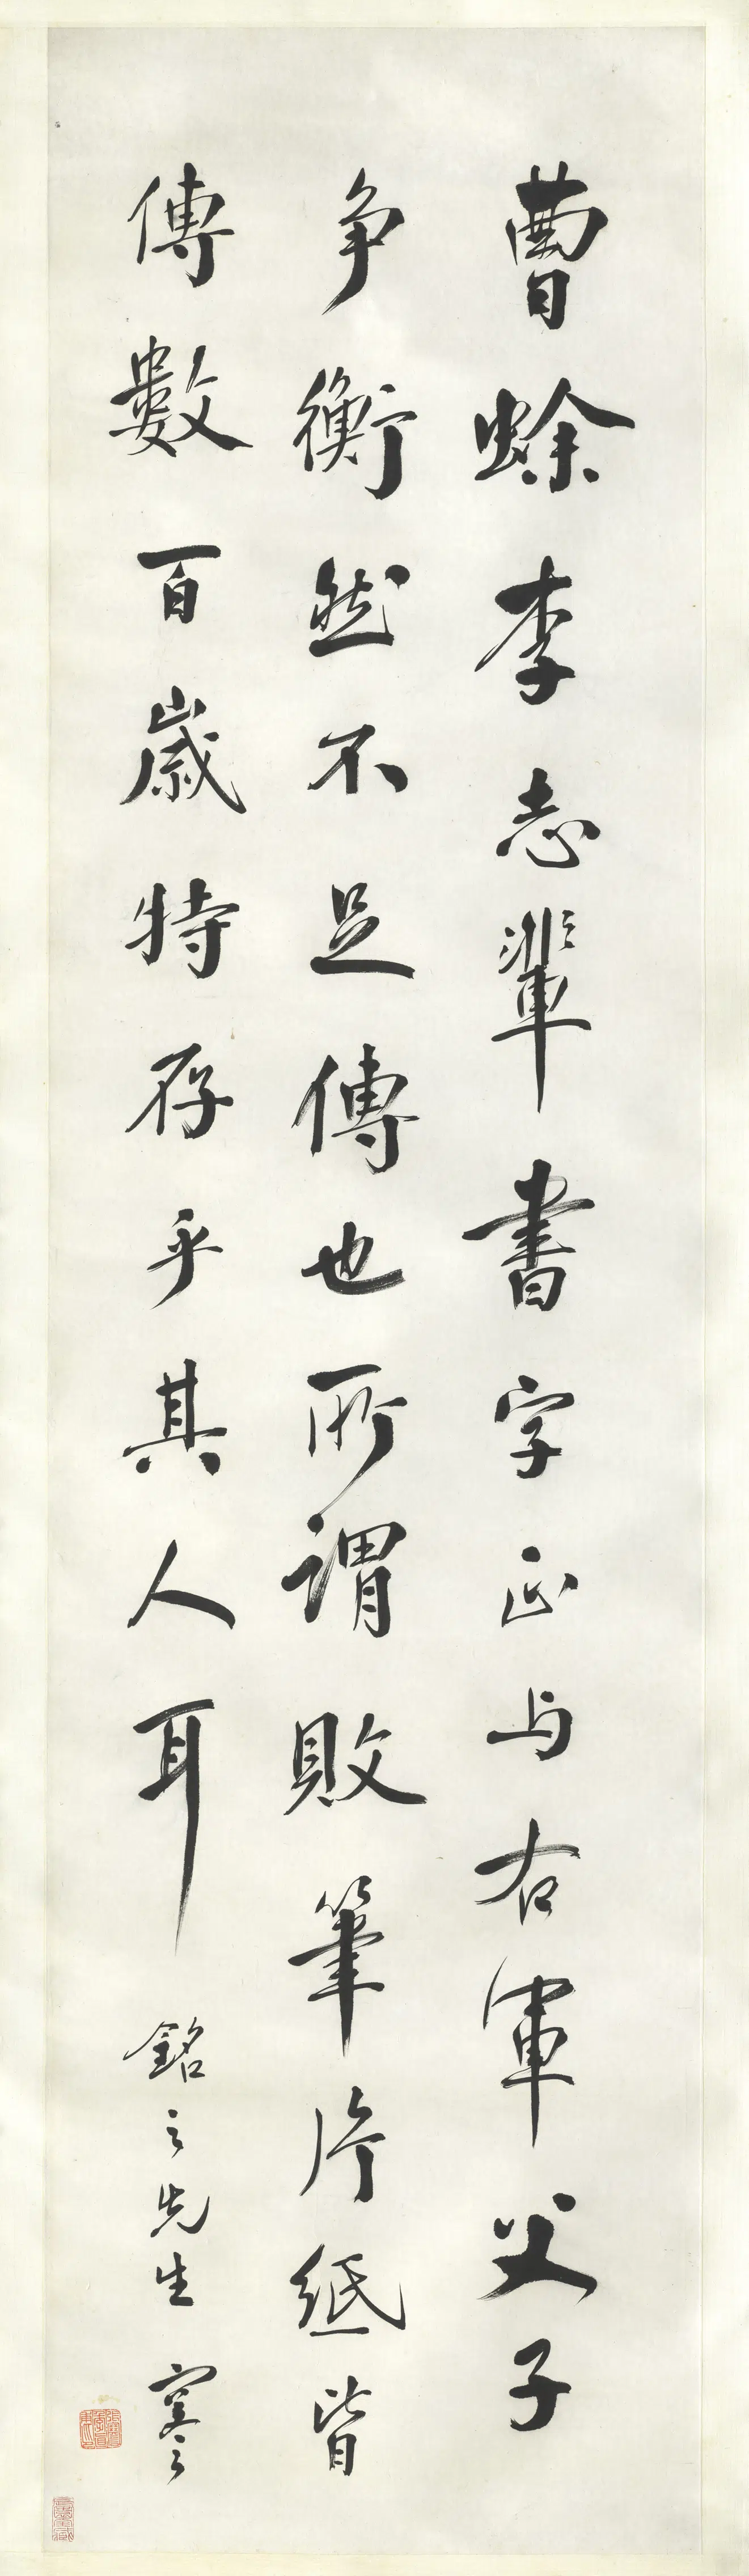 曹蜍李志輩書字正与右軍父子
争衡然不足傳也所謂敗筆片紙皆
傳數百歲特存乎其人耳
銘之先生 寋